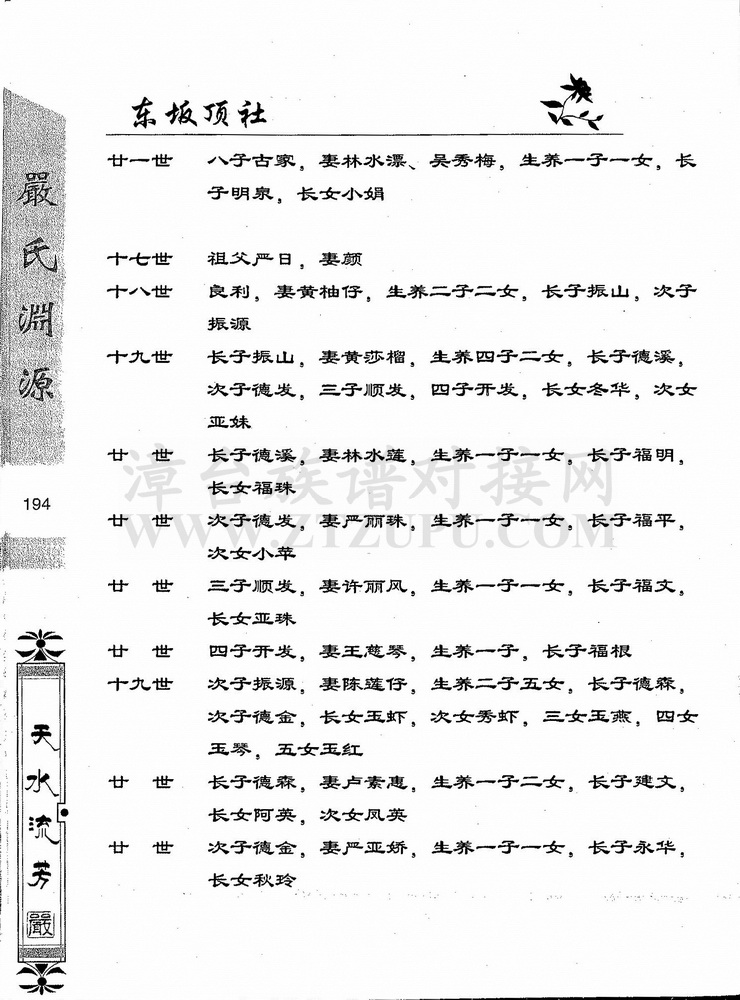 东坂顶社
廿一世 八子古家，妻林水漂、吴秀梅，生养一子一女，长
子明泉，长女小娟
十七世 祖父严日，妻颜
十八世 良利，妻黄柚仔，生养二子二女，长子振山，次子
振源
十九世 长子振山，妻黄莎榴，生养四子二女，长子德溪，
次子德发，三子顺发，四子开发，长女冬华，次女
亚妹
廿 世 长子德溪，妻林水莲，生养一子一女，长子福明，
长女福珠
廿 世 次子德发，妻严丽珠，生养一子一女，长子福平，
次女小苹
廿 世 三子顺发，妻许丽风，生养一子一女，长子福文，
长女亚珠
廿 世 四子开发，妻王慈琴，生养一子，长子福根
十九世 次子振源，妻陈莲仔，生养二子五女，长子德森，
次子德金，长女玉虾，次女秀虾，三女玉燕，四女
玉琴，五女玉红
廿 世 长子德森，妻卢素惠，生养一子二女，长子建文，
长女阿英，次女凤英
廿 世 次子德金，妻严亚娇，生养一子一女，长子永华，
长女秋玲
嚴氏淵源
194
天水流芳
嚴
漳台族谱对接网
WWW.ZTZUPU.COM